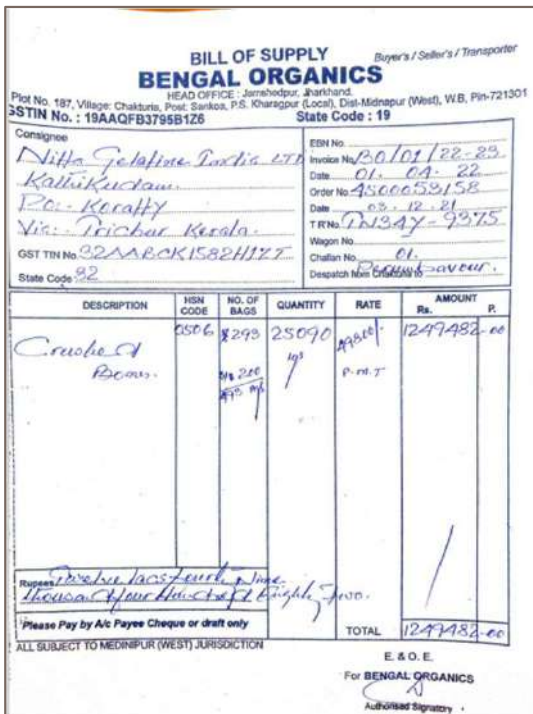 BILL OF SUPPLY
Buyer's / Seller's / Transporter
BENGAL ORGANICS
HEAD OFFICE : Jamshedpur, Jharkhand.
Plot No. 187, Village: Chakturia, Post: Sankoa, P.S. Kharagpur (Local), Dist-Midnapur (West), W.B, Pin-721301
GSTIN No. : 19AAQFB3795B1Z6 State Code : 19
Consignee
Nitta Gelatine India LTD
Kathikudam.
P.O:- Koratty
Via:- Trichur Kerala.
GST TIN No. 32AABCK1582H1ZT
State Code 32
EBN No.
Invoice No. BO/01/22-23
Date 01. 04. 22
Order No. 4500053158
Date 03. 12. 21
T R No. TN34Y-9375
Wagon No.
Challan No. 01.
Despatch from Chakturia to
DESCRIPTION HSN CODE NO. OF BAGS QUANTITY RATE AMOUNT Rs. P.
Crushed Bones. 0506 293 25090 kgs 49800/- P.M.T 1249482-00
200
493
Rupees Twelve lacs fourty Nine
thousand four Hundred Eighty Two.
Please Pay by A/c Payee Cheque or draft only
TOTAL 1249482-00
ALL SUBJECT TO MEDINIPUR (WEST) JURISDICTION
E. & O. E.
For BENGAL ORGANICS
Authorised Signatory